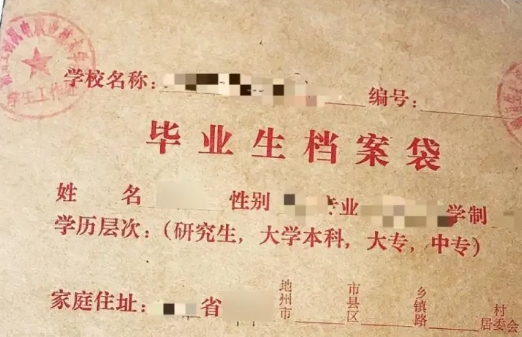 学生工作处
学校名称： 编号：
毕业生档案袋
姓 名 性别 专业 学制
学历层次：（研究生，大学本科，大专，中专）
家庭住址： 省 地州市 市县区 乡镇路 村居委会